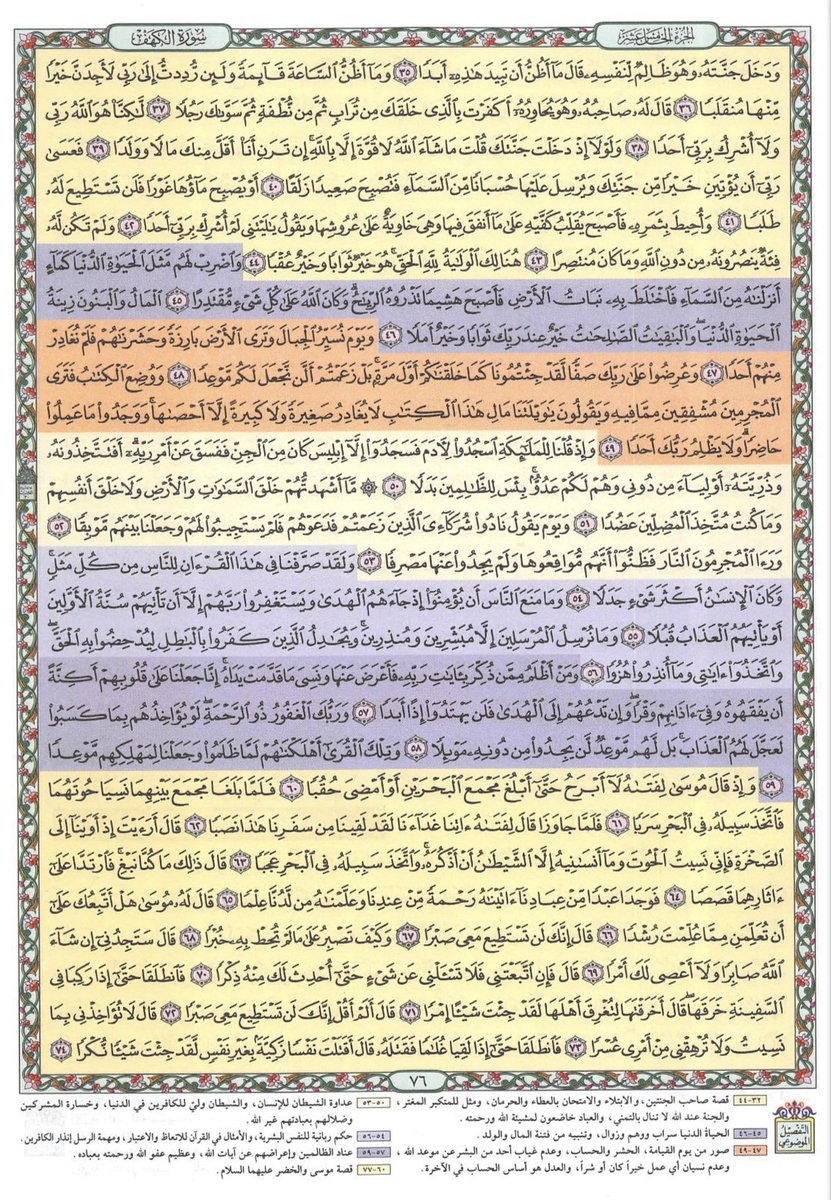 الجزء الخامس عشر
سورة الكهف
وَدَخَلَ جَنَّتَهُۥ وَهُوَ ظَالِمٌ لِّنَفْسِهِۦ قَالَ مَآ أَظُنُّ أَن تَبِيدَ هَٰذِهِۦٓ أَبَدًا ٣٥ وَمَآ أَظُنُّ ٱلسَّاعَةَ قَآئِمَةً وَلَئِن رُّدِدتُّ إِلَىٰ رَبِّى لَأَجِدَنَّ خَيْرًا
مِّنْهَا مُنقَلَبًا ٣٦ قَالَ لَهُۥ صَاحِبُهُۥ وَهُوَ يُحَاوِرُهُۥٓ أَكَفَرْتَ بِٱلَّذِى خَلَقَكَ مِن تُرَابٍ ثُمَّ مِن نُّطْفَةٍ ثُمَّ سَوَّىٰكَ رَجُلًا ٣٧ لَّٰكِنَّا۠ هُوَ ٱللَّهُ رَبِّى
وَلَآ أُشْرِكُ بِرَبِّىٓ أَحَدًا ٣٨ وَلَوْلَآ إِذْ دَخَلْتَ جَنَّتَكَ قُلْتَ مَا شَآءَ ٱللَّهُ لَا قُوَّةَ إِلَّا بِٱللَّهِ ۚ إِن تَرَنِ أَنَا۠ أَقَلَّ مِنكَ مَالًا وَوَلَدًا ٣٩ فَعَسَىٰ
رَبِّىٓ أَن يُؤْتِيَنِ خَيْرًا مِّن جَنَّتِكَ وَيُرْسِلَ عَلَيْهَا حُسْبَانًا مِّنَ ٱلسَّمَآءِ فَتُصْبِحَ صَعِيدًا زَلَقًا ٤٠ أَوْ يُصْبِحَ مَآؤُهَا غَوْرًا فَلَن تَسْتَطِيعَ لَهُۥ
طَلَبًا ٤١ وَأُحِيطَ بِثَمَرِهِۦ فَأَصْبَحَ يُقَلِّبُ كَفَّيْهِ عَلَىٰ مَآ أَنفَقَ فِيهَا وَهِىَ خَاوِيَةٌ عَلَىٰ عُرُوشِهَا وَيَقُولُ يَٰلَيْتَنِى لَمْ أُشْرِكْ بِرَبِّىٓ أَحَدًا ٤٢ وَلَمْ تَكُن لَّهُۥ
فِئَةٌ يَنصُرُونَهُۥ مِن دُونِ ٱللَّهِ وَمَا كَانَ مُنتَصِرًا ٤٣ هُنَالِكَ ٱلْوَلَٰيَةُ لِلَّهِ ٱلْحَقِّ ۚ هُوَ خَيْرٌ ثَوَابًا وَخَيْرٌ عُقْبًا ٤٤ وَٱضْرِبْ لَهُم مَّثَلَ ٱلْحَيَوٰةِ ٱلدُّنْيَا كَمَآءٍ
أَنزَلْنَٰهُ مِنَ ٱلسَّمَآءِ فَٱخْتَلَطَ بِهِۦ نَبَاتُ ٱلْأَرْضِ فَأَصْبَحَ هَشِيمًا تَذْرُوهُ ٱلرِّيَٰحُ ۗ وَكَانَ ٱللَّهُ عَلَىٰ كُلِّ شَىْءٍ مُّقْتَدِرًا ٤٥ ٱلْمَالُ وَٱلْبَنُونَ زِينَةُ
ٱلْحَيَوٰةِ ٱلدُّنْيَا ۖ وَٱلْبَٰقِيَٰتُ ٱلصَّٰلِحَٰتُ خَيْرٌ عِندَ رَبِّكَ ثَوَابًا وَخَيْرٌ أَمَلًا ٤٦ وَيَوْمَ نُسَيِّرُ ٱلْجِبَالَ وَتَرَى ٱلْأَرْضَ بَارِزَةً وَحَشَرْنَٰهُمْ فَلَمْ نُغَادِرْ
مِنْهُمْ أَحَدًا ٤٧ وَعُرِضُوا۟ عَلَىٰ رَبِّكَ صَفًّا لَّقَدْ جِئْتُمُونَا كَمَا خَلَقْنَٰكُمْ أَوَّلَ مَرَّةٍۭ ۚ بَلْ زَعَمْتُمْ أَلَّن نَّجْعَلَ لَكُم مَّوْعِدًا ٤٨ وَوُضِعَ ٱلْكِتَٰبُ فَتَرَى
ٱلْمُجْرِمِينَ مُشْفِقِينَ مِمَّا فِيهِ وَيَقُولُونَ يَٰوَيْلَتَنَا مَالِ هَٰذَا ٱلْكِتَٰبِ لَا يُغَادِرُ صَغِيرَةً وَلَا كَبِيرَةً إِلَّآ أَحْصَىٰهَا ۚ وَوَجَدُوا۟ مَا عَمِلُوا۟
حَاضِرًا ۗ وَلَا يَظْلِمُ رَبُّكَ أَحَدًا ٤٩ وَإِذْ قُلْنَا لِلْمَلَٰٓئِكَةِ ٱسْجُدُوا۟ لِءَادَمَ فَسَجَدُوٓا۟ إِلَّآ إِبْلِيسَ كَانَ مِنَ ٱلْجِنِّ فَفَسَقَ عَنْ أَمْرِ رَبِّهِۦٓ ۗ أَفَتَتَّخِذُونَهُۥ
وَذُرِّيَّتَهُۥٓ أَوْلِيَآءَ مِن دُونِى وَهُمْ لَكُمْ عَدُوٌّۢ ۚ بِئْسَ لِلظَّٰلِمِينَ بَدَلًا ٥٠ ۞ مَّآ أَشْهَدتُّهُمْ خَلْقَ ٱلسَّمَٰوَٰتِ وَٱلْأَرْضِ وَلَا خَلْقَ أَنفُسِهِمْ
وَمَا كُنتُ مُتَّخِذَ ٱلْمُضِلِّينَ عَضُدًا ٥١ وَيَوْمَ يَقُولُ نَادُوا۟ شُرَكَآءِىَ ٱلَّذِينَ زَعَمْتُمْ فَدَعَوْهُمْ فَلَمْ يَسْتَجِيبُوا۟ لَهُمْ وَجَعَلْنَا بَيْنَهُم مَّوْبِقًا ٥٢
وَرَءَا ٱلْمُجْرِمُونَ ٱلنَّارَ فَظَنُّوٓا۟ أَنَّهُم مُّوَاقِعُوهَا وَلَمْ يَجِدُوا۟ عَنْهَا مَصْرِفًا ٥٣ وَلَقَدْ صَرَّفْنَا فِى هَٰذَا ٱلْقُرْءَانِ لِلنَّاسِ مِن كُلِّ مَثَلٍ ۚ
وَكَانَ ٱلْإِنسَٰنُ أَكْثَرَ شَىْءٍ جَدَلًا ٥٤ وَمَا مَنَعَ ٱلنَّاسَ أَن يُؤْمِنُوٓا۟ إِذْ جَآءَهُمُ ٱلْهُدَىٰ وَيَسْتَغْفِرُوا۟ رَبَّهُمْ إِلَّآ أَن تَأْتِيَهُمْ سُنَّةُ ٱلْأَوَّلِينَ
أَوْ يَأْتِيَهُمُ ٱلْعَذَابُ قُبُلًا ٥٥ وَمَا نُرْسِلُ ٱلْمُرْسَلِينَ إِلَّا مُبَشِّرِينَ وَمُنذِرِينَ ۚ وَيُجَٰدِلُ ٱلَّذِينَ كَفَرُوا۟ بِٱلْبَٰطِلِ لِيُدْحِضُوا۟ بِهِ ٱلْحَقَّ ۖ
وَٱتَّخَذُوٓا۟ ءَايَٰتِى وَمَآ أُنذِرُوا۟ هُزُوًا ٥٦ وَمَنْ أَظْلَمُ مِمَّن ذُكِّرَ بِـَٔايَٰتِ رَبِّهِۦ فَأَعْرَضَ عَنْهَا وَنَسِىَ مَا قَدَّمَتْ يَدَاهُ ۚ إِنَّا جَعَلْنَا عَلَىٰ قُلُوبِهِمْ أَكِنَّةً
أَن يَفْقَهُوهُ وَفِىٓ ءَاذَانِهِمْ وَقْرًا ۖ وَإِن تَدْعُهُمْ إِلَى ٱلْهُدَىٰ فَلَن يَهْتَدُوٓا۟ إِذًا أَبَدًا ٥٧ وَرَبُّكَ ٱلْغَفُورُ ذُو ٱلرَّحْمَةِ ۖ لَوْ يُؤَاخِذُهُم بِمَا كَسَبُوا۟
لَعَجَّلَ لَهُمُ ٱلْعَذَابَ ۚ بَل لَّهُم مَّوْعِدٌ لَّن يَجِدُوا۟ مِن دُونِهِۦ مَوْئِلًا ٥٨ وَتِلْكَ ٱلْقُرَىٰٓ أَهْلَكْنَٰهُمْ لَمَّا ظَلَمُوا۟ وَجَعَلْنَا لِمَهْلِكِهِم مَّوْعِدًا
٥٩ وَإِذْ قَالَ مُوسَىٰ لِفَتَىٰهُ لَآ أَبْرَحُ حَتَّىٰٓ أَبْلُغَ مَجْمَعَ ٱلْبَحْرَيْنِ أَوْ أَمْضِىَ حُقُبًا ٦٠ فَلَمَّا بَلَغَا مَجْمَعَ بَيْنِهِمَا نَسِيَا حُوتَهُمَا
فَٱتَّخَذَ سَبِيلَهُۥ فِى ٱلْبَحْرِ سَرَبًا ٦١ فَلَمَّا جَاوَزَا قَالَ لِفَتَىٰهُ ءَاتِنَا غَدَآءَنَا لَقَدْ لَقِينَا مِن سَفَرِنَا هَٰذَا نَصَبًا ٦٢ قَالَ أَرَءَيْتَ إِذْ أَوَيْنَآ إِلَى
ٱلصَّخْرَةِ فَإِنِّى نَسِيتُ ٱلْحُوتَ وَمَآ أَنسَىٰنِيهُ إِلَّا ٱلشَّيْطَٰنُ أَنْ أَذْكُرَهُۥ ۚ وَٱتَّخَذَ سَبِيلَهُۥ فِى ٱلْبَحْرِ عَجَبًا ٦٣ قَالَ ذَٰلِكَ مَا كُنَّا نَبْغِ ۚ فَٱرْتَدَّا عَلَىٰٓ
ءَاثَارِهِمَا قَصَصًا ٦٤ فَوَجَدَا عَبْدًا مِّنْ عِبَادِنَآ ءَاتَيْنَٰهُ رَحْمَةً مِّنْ عِندِنَا وَعَلَّمْنَٰهُ مِن لَّدُنَّا عِلْمًا ٦٥ قَالَ لَهُۥ مُوسَىٰ هَلْ أَتَّبِعُكَ عَلَىٰٓ
أَن تُعَلِّمَنِ مِمَّا عُلِّمْتَ رُشْدًا ٦٦ قَالَ إِنَّكَ لَن تَسْتَطِيعَ مَعِىَ صَبْرًا ٦٧ وَكَيْفَ تَصْبِرُ عَلَىٰ مَا لَمْ تُحِطْ بِهِۦ خُبْرًا ٦٨ قَالَ سَتَجِدُنِىٓ إِن شَآءَ
ٱللَّهُ صَابِرًا وَلَآ أَعْصِى لَكَ أَمْرًا ٦٩ قَالَ فَإِنِ ٱتَّبَعْتَنِى فَلَا تَسْـَٔلْنِى عَن شَىْءٍ حَتَّىٰٓ أُحْدِثَ لَكَ مِنْهُ ذِكْرًا ٧٠ فَٱنطَلَقَا حَتَّىٰٓ إِذَا رَكِبَا فِى
ٱلسَّفِينَةِ خَرَقَهَا ۖ قَالَ أَخَرَقْتَهَا لِتُغْرِقَ أَهْلَهَا لَقَدْ جِئْتَ شَيْـًٔا إِمْرًا ٧١ قَالَ أَلَمْ أَقُلْ إِنَّكَ لَن تَسْتَطِيعَ مَعِىَ صَبْرًا ٧٢ قَالَ لَا تُؤَاخِذْنِى بِمَا
نَسِيتُ وَلَا تُرْهِقْنِى مِنْ أَمْرِى عُسْرًا ٧٣ فَٱنطَلَقَا حَتَّىٰٓ إِذَا لَقِيَا غُلَٰمًا فَقَتَلَهُۥ قَالَ أَقَتَلْتَ نَفْسًا زَكِيَّةًۢ بِغَيْرِ نَفْسٍ لَّقَدْ جِئْتَ شَيْـًٔا نُّكْرًا ٧٤
٧٦
التفصيل الموضوعي
٣٢-٤٤ قصة صاحب الجنتين، والابتلاء والامتحان بالعطاء والحرمان، ومثل للمتكبر المغتر،
والجنة عند الله لا تنال بالتمني، والعباد خاضعون لمشيئة الله ورحمته.
٤٥-٤٦ الحياة الدنيا سراب ووهم وزوال، وتنبيه من فتنة المال والولد.
٤٧-٤٩ صور من يوم القيامة، الحشر والحساب، وعدم غياب أحد من البشر عن موعد الله،
وعدم نسيان أي عمل خيراً كان أو شراً، والعدل هو أساس الحساب في الآخرة.
٥٠-٥٣ عداوة الشيطان للإنسان، والشيطان وليّ للكافرين في الدنيا، وخسارة المشركين
وضلالهم بعبادتهم غير الله.
٥٤-٥٦ حكم ربانية للنفس البشرية، والأمثال في القرآن للاتعاظ والاعتبار، ومهمة الرسل إنذار الكافرين.
٥٧-٥٩ عناد الظالمين وإعراضهم عن آيات الله، وعظيم عفو الله ورحمته بعباده.
٦٠-٧٧ قصة موسى والخضر عليهما السلام.